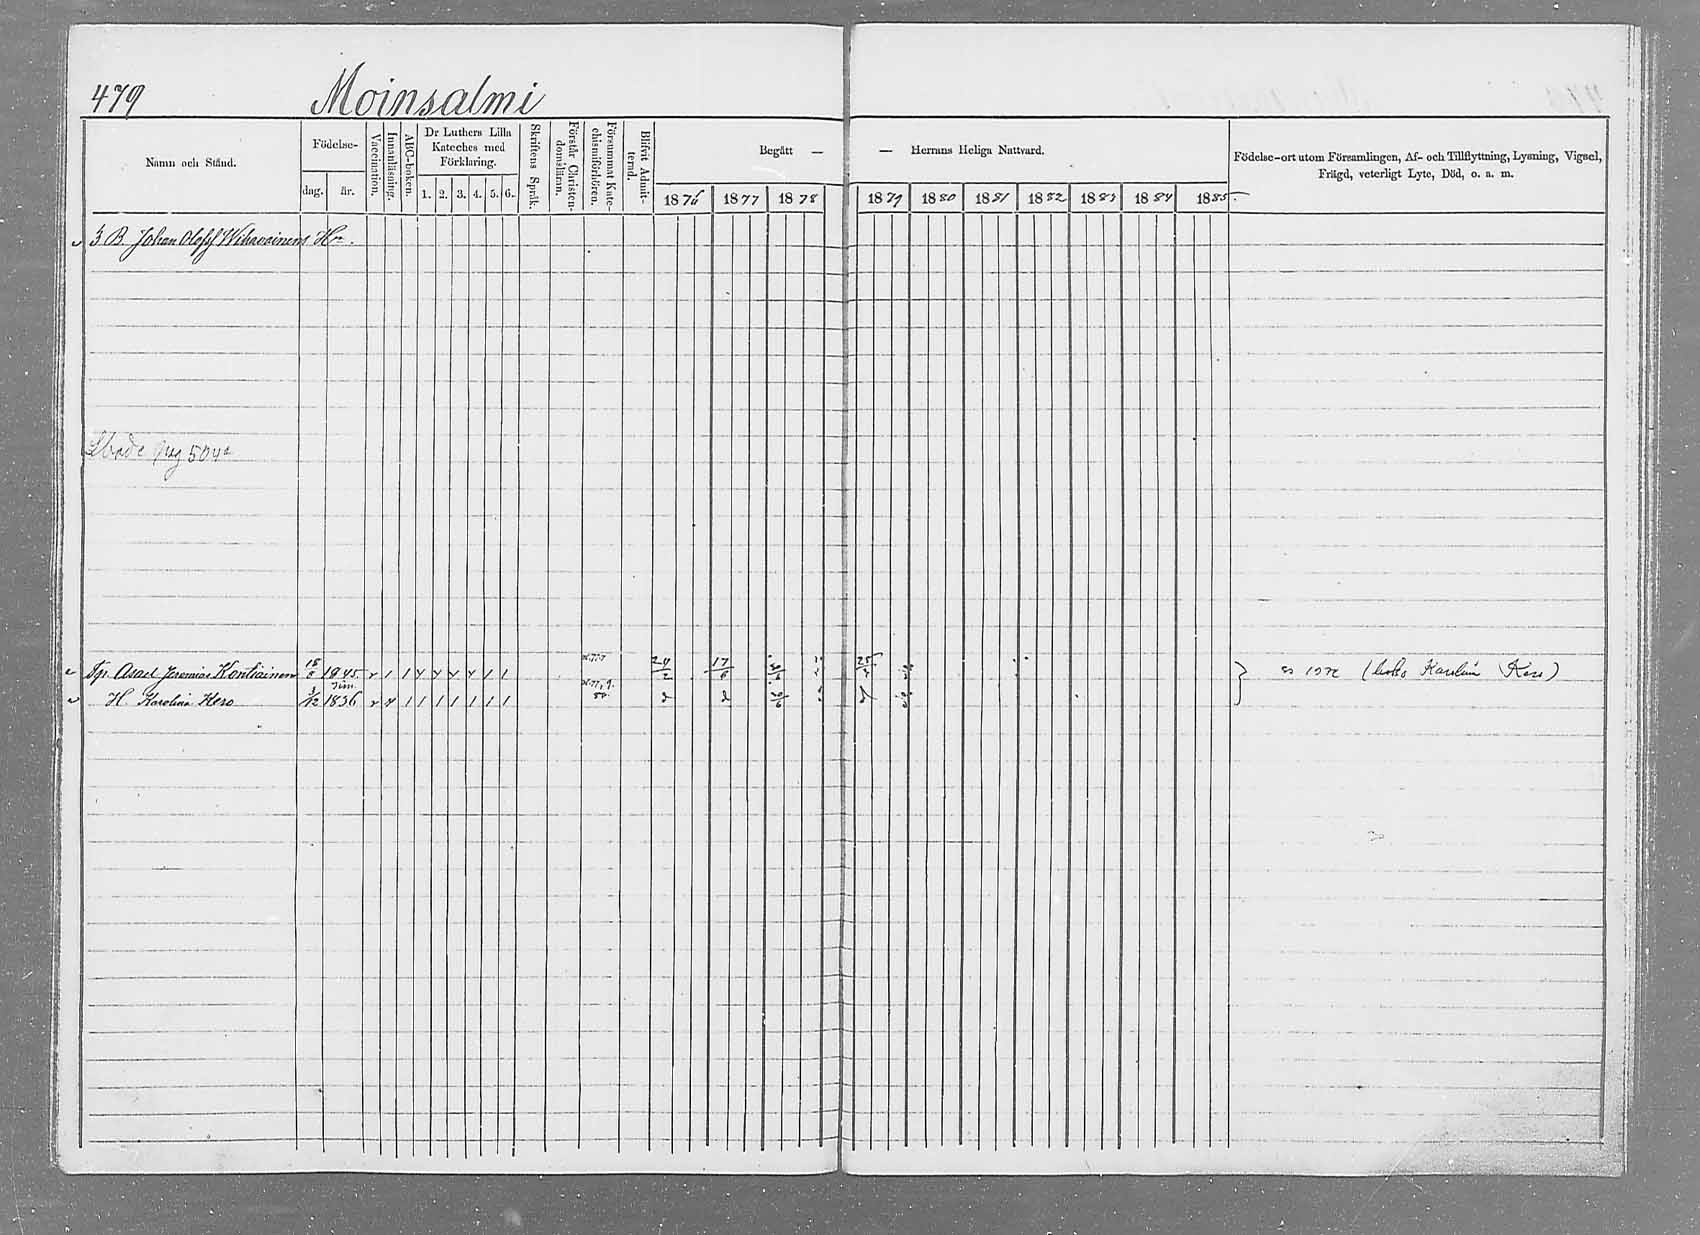 479 Moinsalmi
Namn och Stånd.
Födelse-
dag. år.
Vaccination.
Innanläsning.
ABC-boken.
Dr Luthers Lilla
Kateches med
Förklaring.
1. 2. 3. 4. 5. 6.
Skriftens Språk.
Förstår Christen-
domsläran.
Försummat Kate-
chismiförhören.
Blifvit Admit-
terad.
Begått — — Herrans Heliga Nattvard.
1876 1877 1878 1879 1880 1881 1882 1883 1884 1885.
Födelse-ort utom Församlingen, Af- och Tillflyttning, Lysning, Vigsel,
Frägd, veterligt Lyte, Död, o. a. m.
3 B Johan Olofsf Wihavainens Hn.
pag 504
Asael Jeremias Kontiainen 1845 1 1 1 1 24 17 25 (Karolin Kero)
H. Karolina Kero 3/12 1836 1 1 1 1 1 1 1